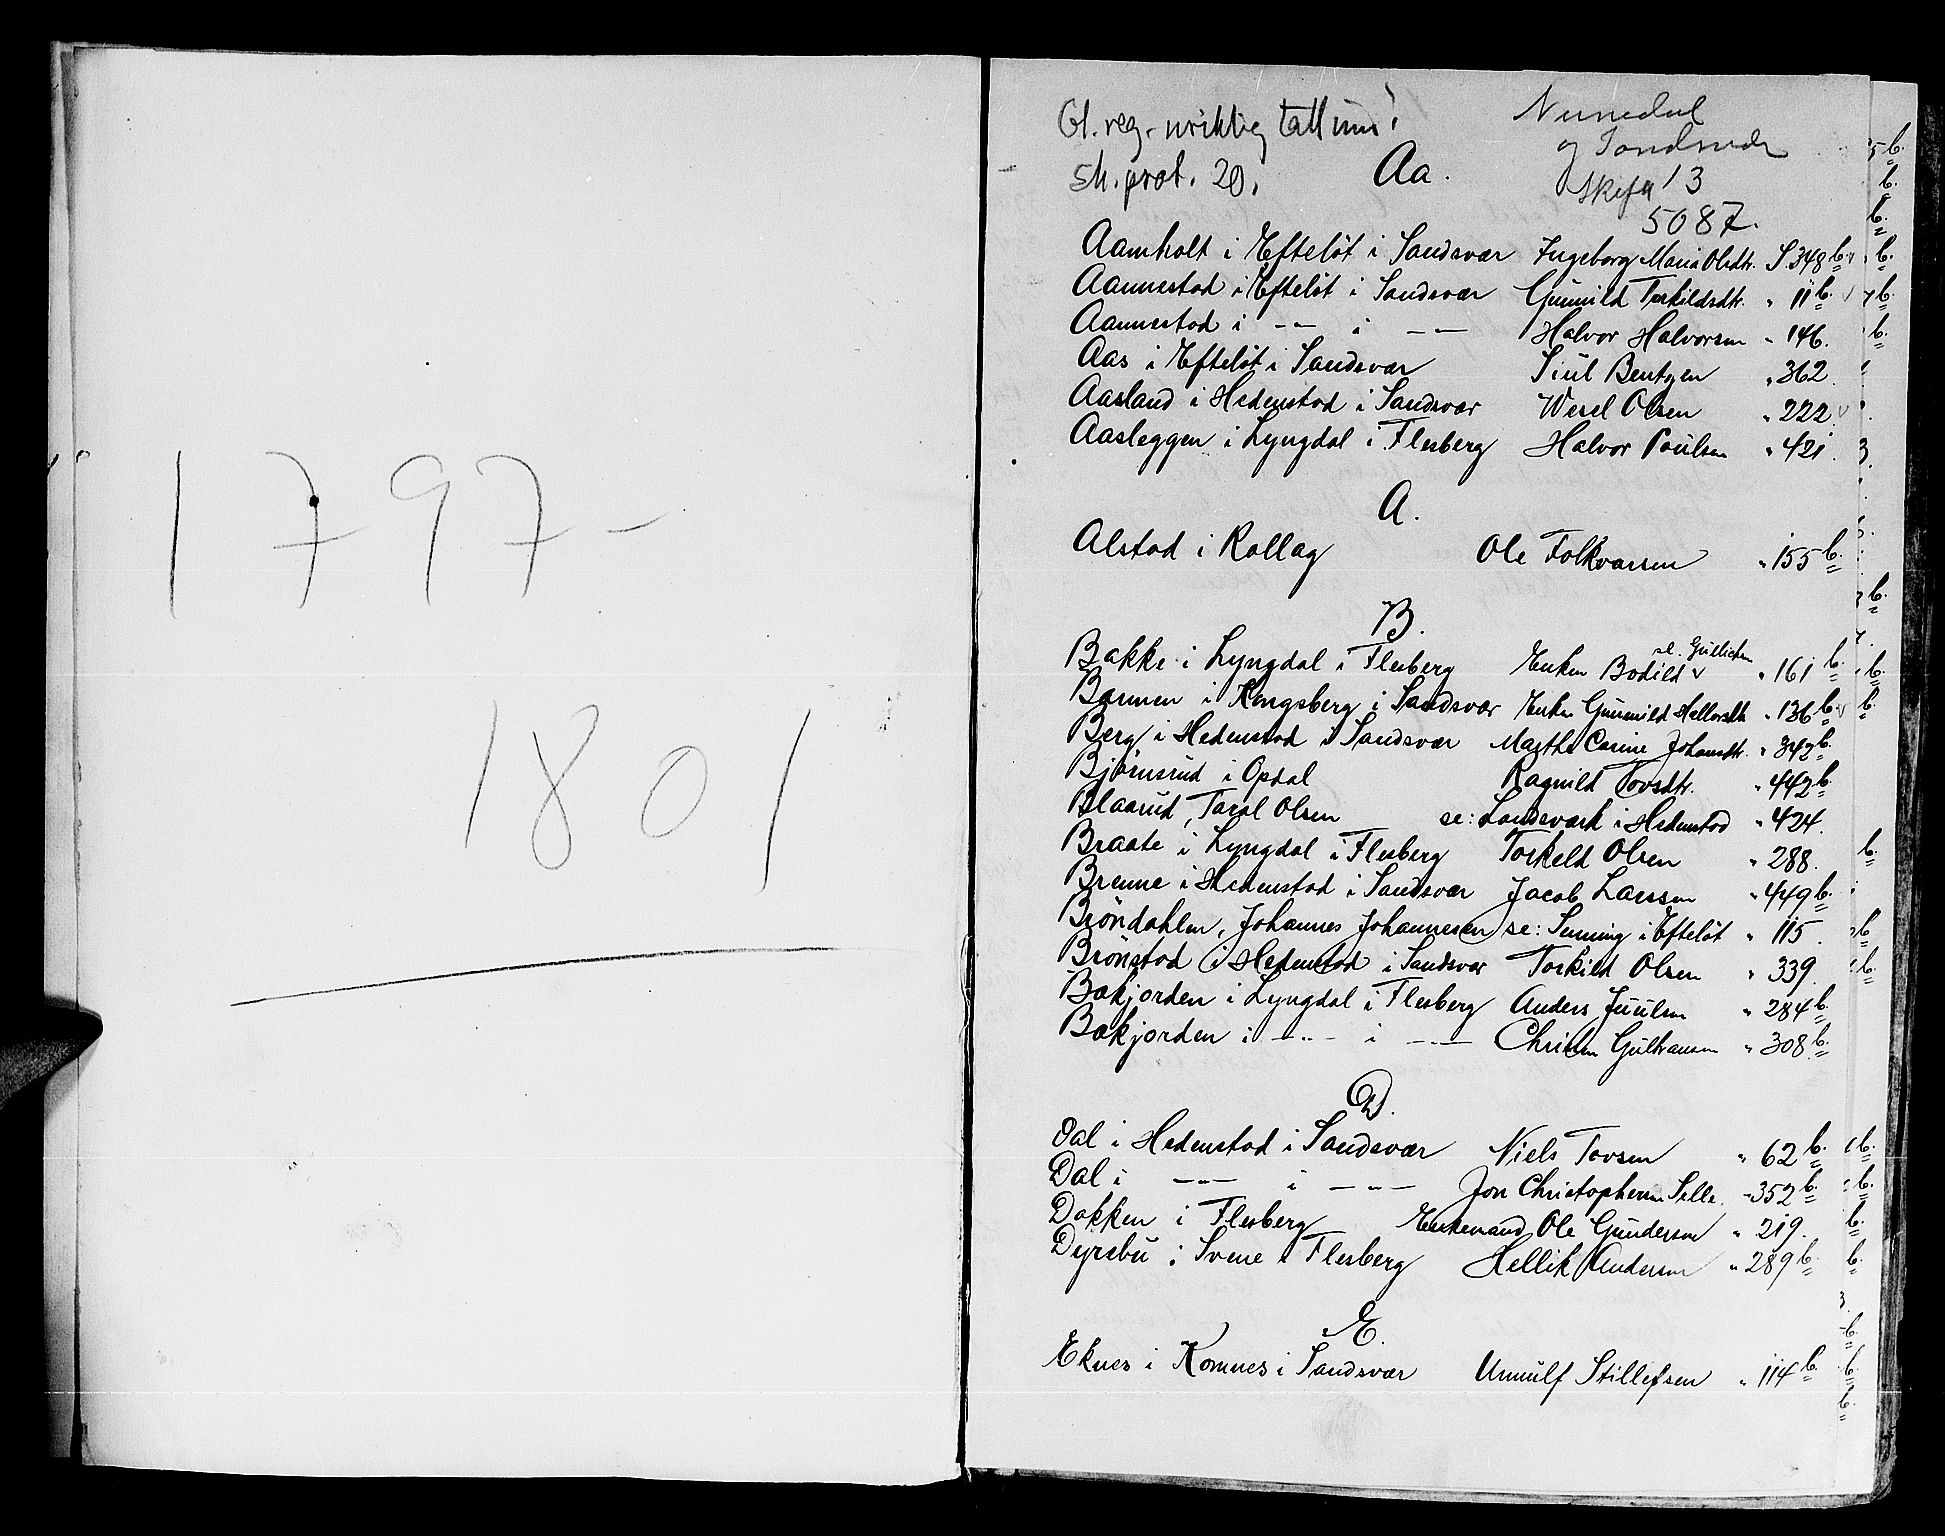 1797-
1801
Gl. reg. uriktig tall inni!
Sk. prot. 20.
Numedal
og Sandsvær
Skifte 13
5087.
Aa.
Aamholt i Efteløt i Sandsvær Ingeborg Maria Olsdtr. S 348 b.
Aannestad i Efteløt i Sandsvær Gunnild Torkildsdtr. " 11 b. v
Aannestad i -"- i -"- Halvor Halvorsen " 146.
Aas i Efteløt i Sandsvær Siul Bentzen " 362.
Aasland i Hedenstad i Sandsvær Wesel Olsen " 222. v
Aasleggen i Lyngdal i Flesberg Halvor Poulsen " 421.
A.
Alstad i Rollag Ole Folkvarsen " 155 b.
B.
Bakke i Lyngdal i Flesberg Enken Bodild v sl. Gullichsen " 161 b.
Barmen i Kongsberg i Sandsvær Enken Gunnild Hellersdtr. " 136 b. v
Berg i Hedenstad i Sandsvær Marthe Carine Johansdtr. " 342 b.
Bjørnsrud i Opdal Ragnild Tovsdtr. " 442 b.
Blaarud, Taral Olsen se: Landsverk i Hedenstad " 424.
Braate i Lyngdal i Flesberg Torkeld Olsen " 288.
Brenne i Hedenstad i Sandsvær Jacob Larssen " 449 b.
Brøndahlen, Johannes Johannesen se: Senning i Efteløt " 115.
Brønstad i Hedenstad i Sandsvær Torkild Olsen " 339.
Bækjorden i Lyngdal i Flesberg Anders Juulsen " 284 b.
Bækjorden i -"- i -"- Christen Gulbransen " 308 b.
D.
Dal i Hedenstad i Sandsvær Niels Tovsen " 62 b.
Dal i -"- i -"- Jon Christophersen Selle " 352 b.
Dokken i Flesberg Enkemand Ole Gundersen " 219.
Dyrebu i Svene i Flesberg Hellik Andersen " 289 b.
E.
Eknes i Komnes i Sandsvær Unnulf Stillefsen " 114 b.